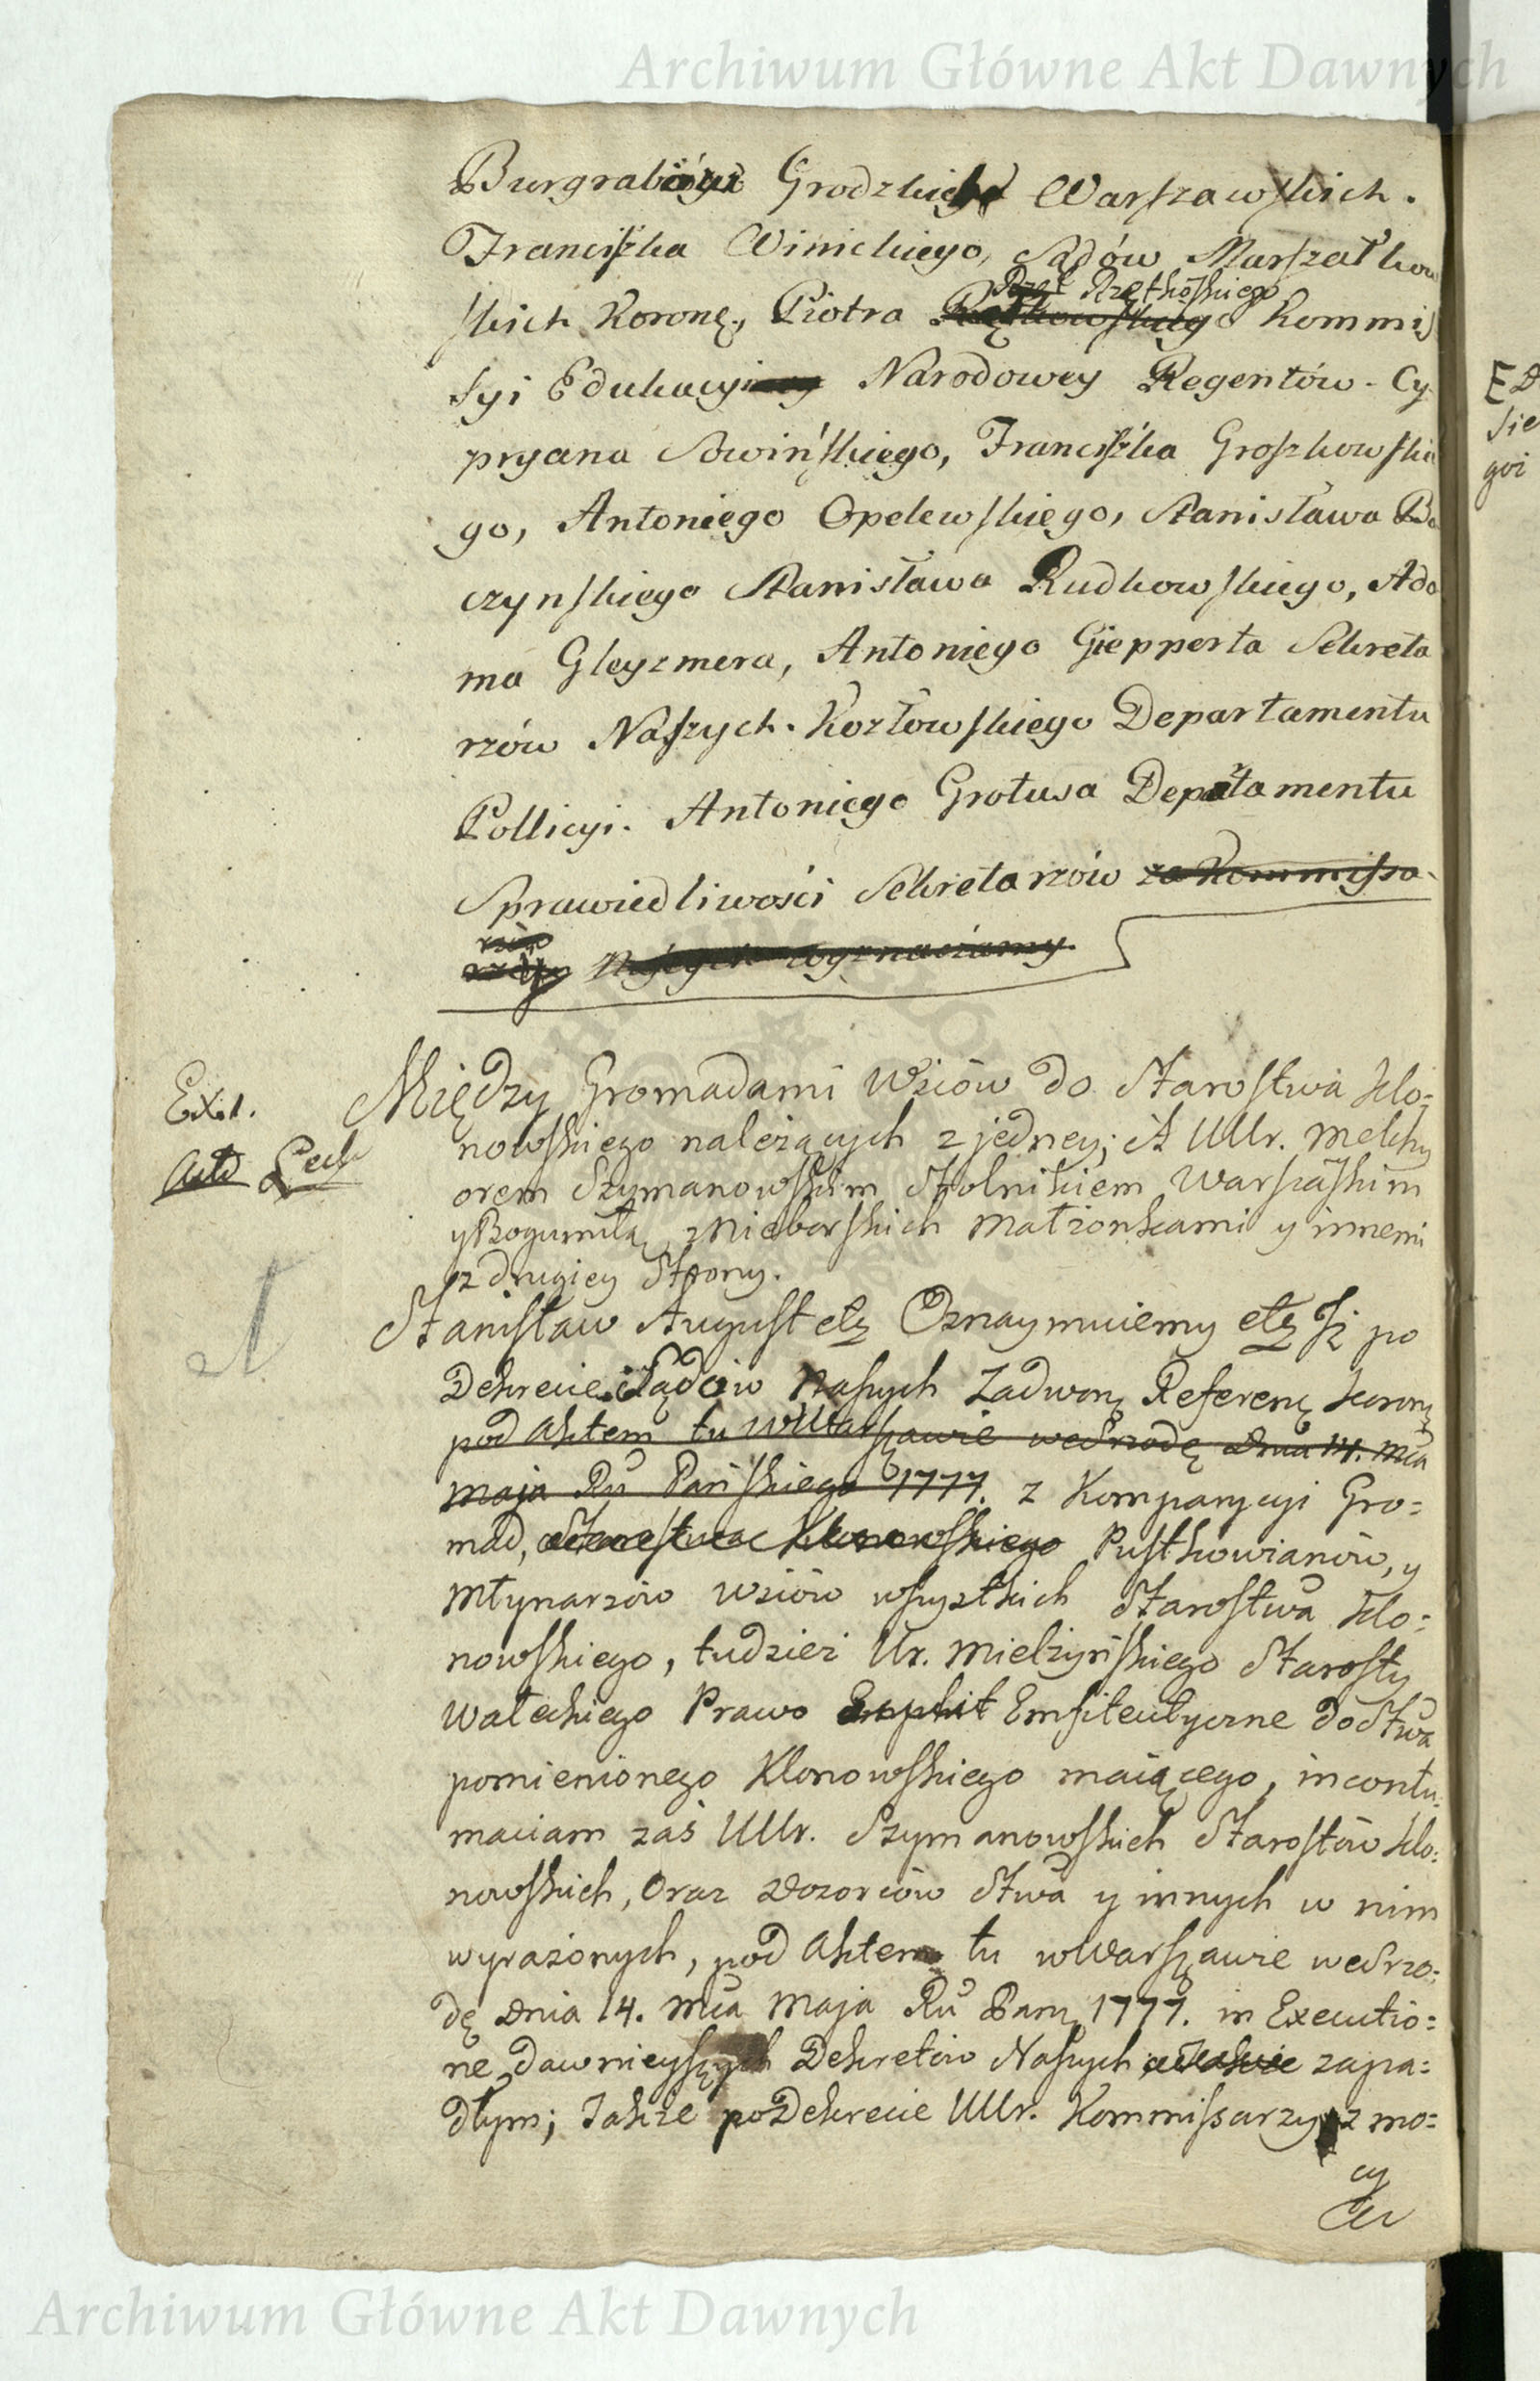 Archiwum Główne Akt Dawnych
Burgrabiów Grodzkich Warszawskich.
Franciszka Winickiego, Sądów Marszałkow
skich Koronę., Piotra Rzętkowskiego Kommis
syi Edukacyi Narodowey Regentów. Cy-
pryana Sowińskiego, Franciszka Groszkowskie
go, Antoniego Opelewskiego, Stanisława Ba
czynskiego Stanisława Rudkowskiego, Ada
ma Gleyzmera, Antoniego Giepperta Sekreta
rzów Naszych. Kozłowskiego Departamentu
Pollicyi. Antoniego Grotusa Departamentu
Sprawiedliwości Sekretarzów za Kommissa-
rzów Naszych wyznaczamy.
Ext.
Między Gromadami Wsiów do Starostwa Klo=
nowskiego należących z jedney; A UUr. Melchy
orem Szymanowskim Stolnikiem Warszaskim
y Bogumiłą z Mieborskich Małżonkami y innemi
z drugiey Strony.
Stanisław August etę Oznaymuiemy etę Jż po
Dekrecie Sądów Naszych Zadworę Referenę Koronę
pod Aktem tu w Warszawie we Srzodę Dnia 14. Mca
Maja Ru Pańskiego 1777. z Komparycyi Gro=
mad, Starostwa Klonowskiego Pustkowianów, y
Młynarzów Wsiów wszystkich Starostwa Klo=
nowskiego, tudzież Ur. Mielżyńskiego Starosty
Wałeckiego Prawo Emphit Emfiteutyczne do Stwa
pomienionego Klonowskiego maiącego, in contu=
maciam zaś UUr. Szymanowskich Starostów Klo=
nowskich, Oraz Dozorców Stwa y innych w nim
wyrażonych, pod Aktem tu w Warszawie we Srzo=
dę Dnia 14. Mca Maja Ru Panę 1777. in Executio=
ne dawnieyszych Dekretów Naszych zapa=
dłym; Także po Dekrecie UUr. Kommissarzy z mo=
cy
Archiwum Główne Akt Dawnych